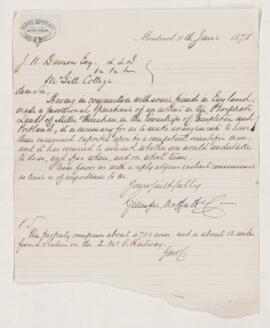 Montreal 11th June 1878
J. W. Dawson Esq. L.L.D
&c &c &c
McGill College
Dear Sir
Having in conjunction with some friends in England
made a conditional purchase of an interest in the Phosphate
Lands of Miller in the townships of Templeton and
Portland, it is necessary for us to make arrangements to have
them examined & reported upon by a competent scientific man,
and it has occurred to us to ask whether you would undertake
to do so, and if so when, and on what terms.
Please favor us with a reply at your earliest convenience
as time is of importance to us.
Yours faithfully
Gillespie Moffatt & Co
P.S.
The property comprises about 4700 acres and is about 12 miles
from a station on the Railway.